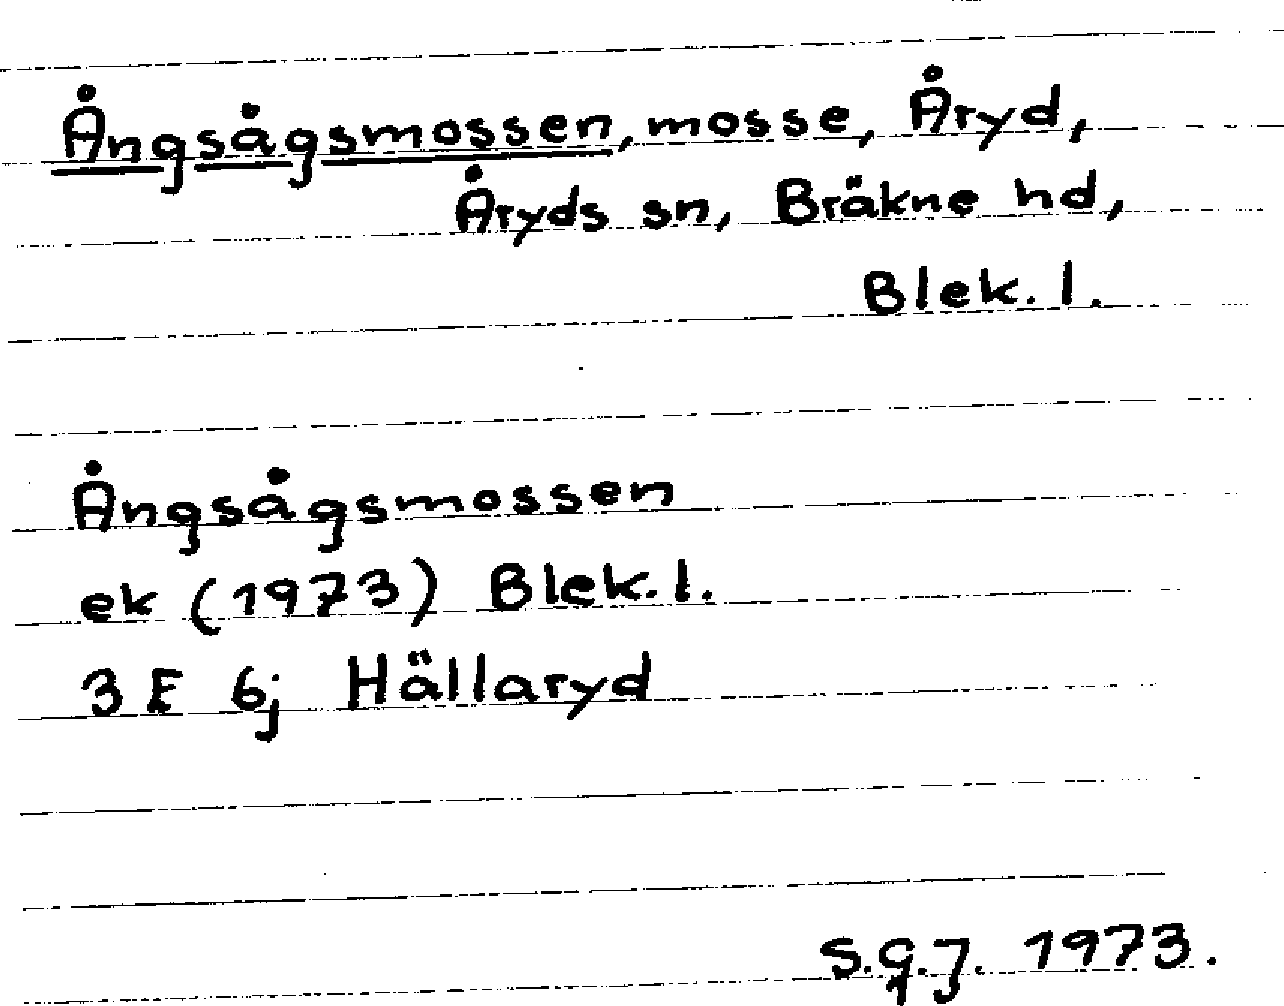 Ångsågsmossen, mosse, Åryd,
Åryds sn, Bräkne hd,
Blek. l.
Ångsågsmossen
ek (1973) Blek. l.
3 E 6j Hällaryd
S.g.J. 1973.